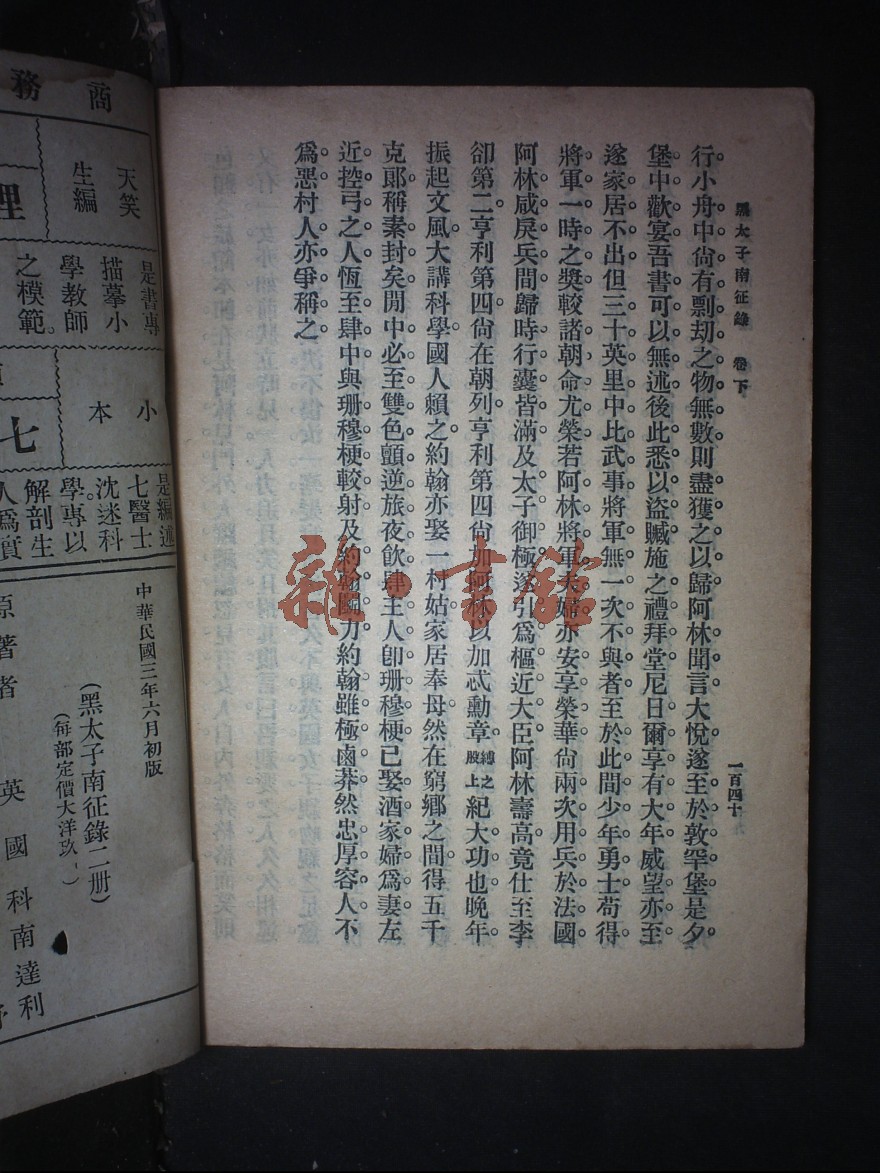 黑太子南征錄 卷下
一百四十
行小舟中尙有剽刧之物無數則盡獲之以歸阿林聞言大悅遂至於敦罕堡是夕
堡中歡宴吾書可以無述後此悉以盜贓施之禮拜堂尼日爾享有大年威望亦至
遂家居不出但三十英里中比武事將軍無一次不與者至於此間少年勇士苟得
將軍一時之獎較諸朝命尤榮若阿林將軍夫婦亦安享榮華尙兩次用兵於法國
阿林咸戾兵間歸時行囊皆滿及太子御極遂引爲樞近大臣阿林壽高竟仕至李
卻第二亨利第四尙在朝列亨利第四尙加阿林以加忒勳章縛之股上紀大功也晚年
振起文風大講科學國人賴之約翰亦娶一村姑家居奉母然在窮鄉之間得五千
克郞稱素封矣閒中必至雙色顫逆旅夜飮肆主人卽珊穆梗已娶酒家婦爲妻左
近控弓之人恆至肆中與珊穆梗較射及約翰鬬力約翰雖極鹵莽然忠厚容人不
爲惡村人亦爭稱之
雜·書館
商務
天笑生編
是書專描摹小學教師之模範
小本
七
是編述七醫士沈迷科學專以解剖生人爲實
中華民國三年六月初版
(黑太子南征錄二册)
(每部定價大洋玖
原著者 英國科南達利